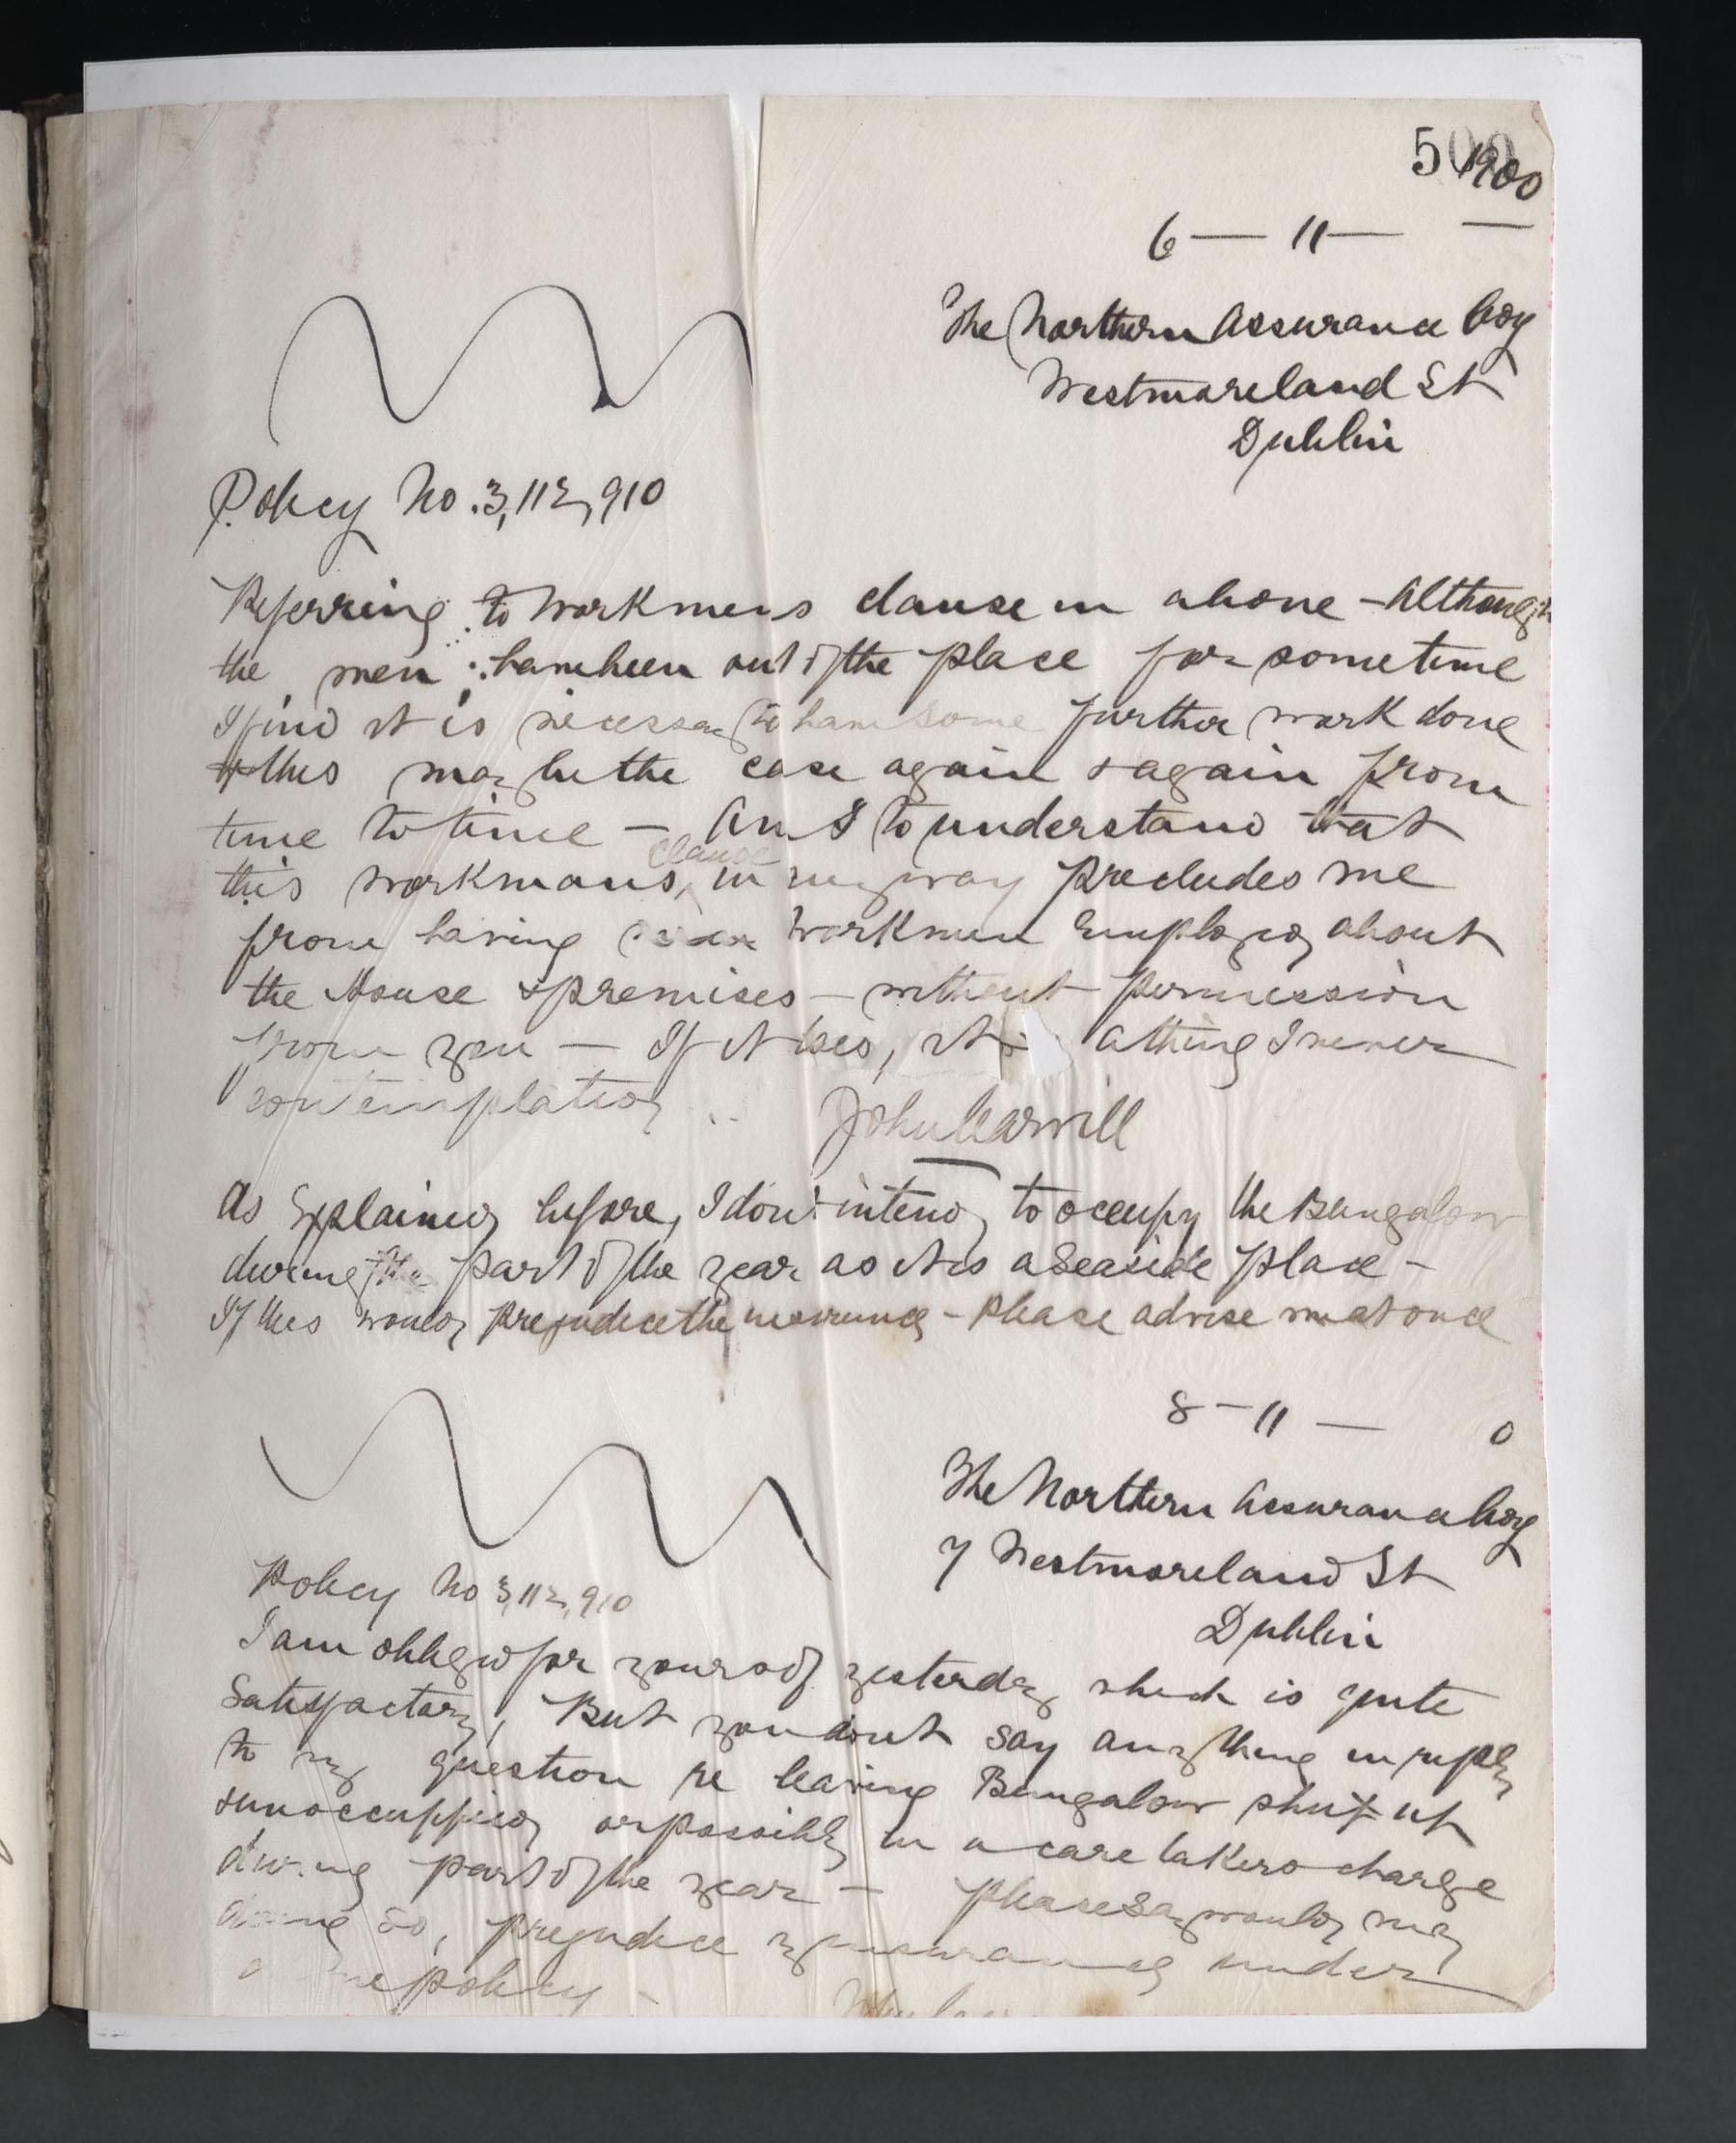 500
1900
6 — 11 —
The Northern Assurance Coy
Westmoreland St
Dublin
Policy No. 3,112,910
Referring to Workmens clause in above - Although
the men have been out of the place for sometime
I find it is necessary to have some further work done
& this may be the case again & again from
time to time — Am I to understand that
clause
this workmans, in any way precludes me
from having workmen employed about
the House & premises — without permission
from you — If it does, it a thing I never
contemplated
John Carvill
As Explained before, I don't intend to occupy the Bungalow
during the part of the year as it is a Seaside place —
If this would prejudice the insurance - Please advise me at once
8 — 11 — 0
The Northern Assurance Coy
7 Westmoreland St
Dublin
Policy No 3,112,910
I am obliged for yours of yesterday which is quite
Satisfactory, But you dont say anything in reply
to my question re leaving Bungalow shut up
& unoccupied or possibly in a care takers charge
during part of the year — Please say would my
doing so, prejudice my insurance under
policy —